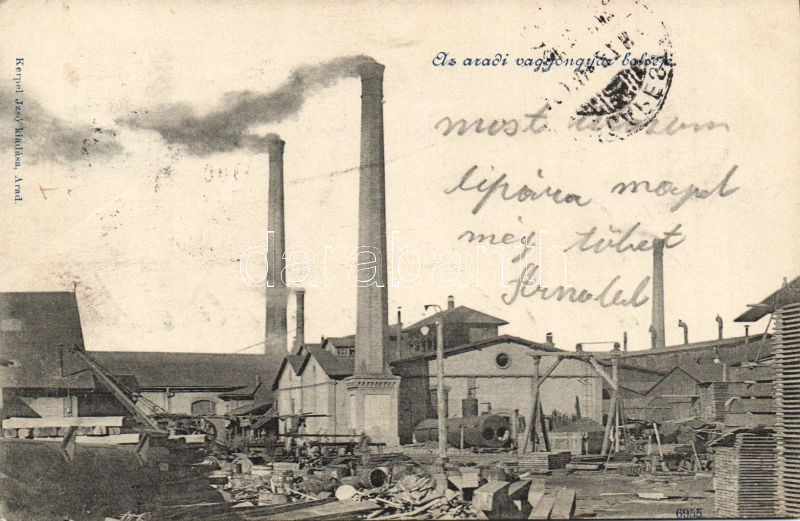 Az aradi vaggongyár belseje.
Kerpel Jzsó kiadása, Arad.
most utazom
lipára majd
még többet
Arnold
darabanth
6955